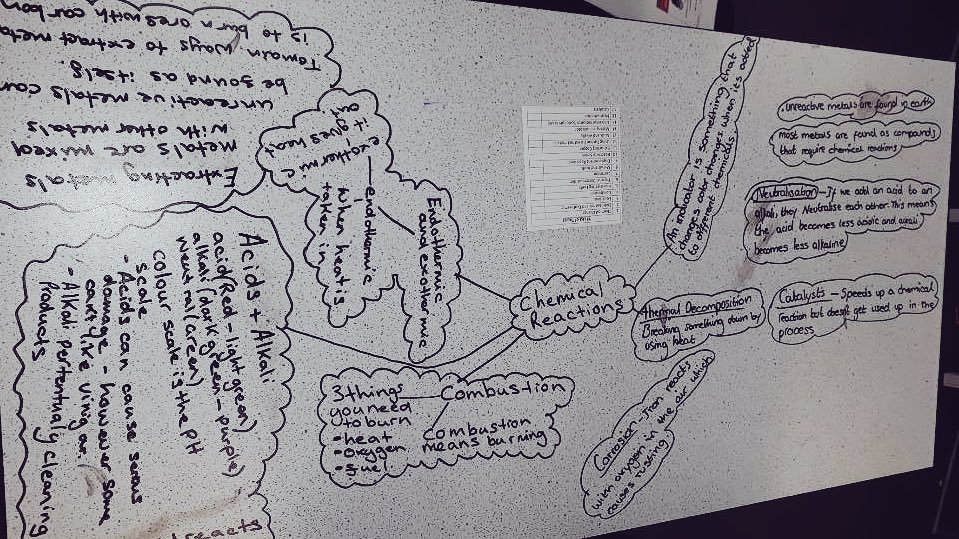 Chemical
Reactions
An indicator is something that
changes color changes when its added
to different chemicals
. unreactive metals are found in earth
most metals are found as compounds
that require chemical reactions
Neutralisation - If we add an acid to an
alkali, they Neutralise each other. This means
the acid becomes less acidic and
becomes less alkaline
Catalysts - Speeds up a chemical
reaction but doesnt get used up in the
process
Thermal Decomposition
Breaking something down by
using heat
Corrosion - Iron reacts
with oxygen in the air which
causes rusting
Combustion
Combustion
means burning
3 things
you need
to burn
- heat
- oxygen
- fuel
Endothermic
and exothermic
- endothermic
when heat is
taken in
it gives heat
out
Acids + Alkali
acid (Red - light green)
alkali (dark green - purple)
(Green)
colour scale is the pH
scale
- Acids can cause serous
damage - however some
cant like
- Alkali
Products cleaning
reacts
Extracting metals
metals are mixed
with other metals
unreactive metals can
be found as itself.
ways to extract
is to burn ores with carbon